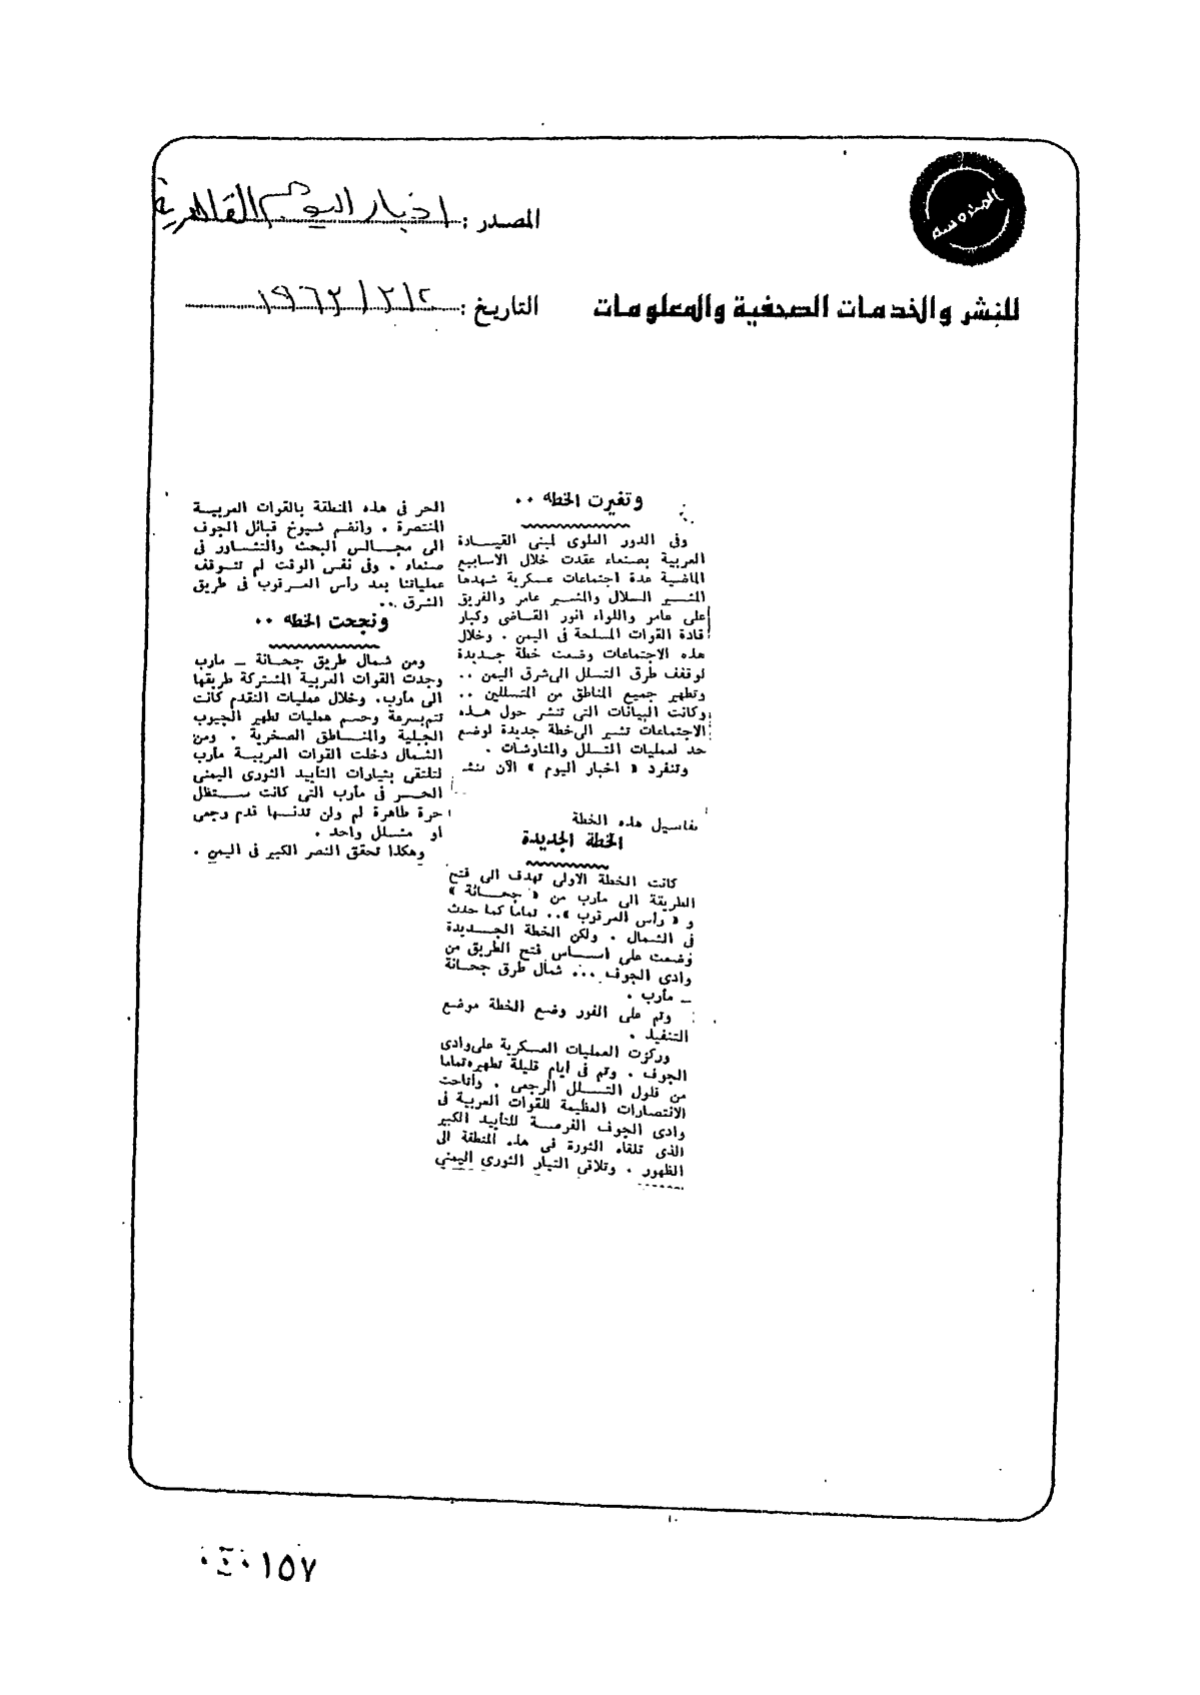 المصدر : اخبار اليوم القاهرية
المحروسة
للنشر والخدمات الصحفية والمعلومات
التاريخ : ١٩٦٣/٣/٢
وتغيرت الخطه ..
وفى الدور العلوى لمبنى القيادة
العربية بصنعاء عقدت خلال الاسابيع
الماضية عدة اجتماعات عسكرية شهدها
المشير السلال والمشير عامر والفريق
على عامر واللواء انور القاضى وكبار
قادة القوات المسلحة فى اليمن . وخلال
هذه الاجتماعات وضعت خطة جديدة
لوقف طرق التسلل الى شرق اليمن ..
وتطهير جميع المناطق من المتسللين ..
وكانت البيانات التى تنشر حول هذه
الاجتماعات تشير الى خطة جديدة لوضع
حد لعمليات التسلل والمناوشات .
وتنفرد « اخبار اليوم » الآن بنشر
تفاصيل هذه الخطة
الخطة الجديدة
كانت الخطة الاولى تهدف الى فتح
الطريقة الى مأرب من « جحانة »
و « رأس العرقوب » .. تماما كما حدث
فى الشمال . ولكن الخطة الجديدة
وضعت على اساس فتح الطريق من
وادى الجوف ... شمال طرق جحانة
ــ مأرب .
وتم على الفور وضع الخطة موضع
التنفيذ .
وركزت العمليات العسكرية على وادى
الجوف . وتم فى ايام قليلة تطهيره تماما
من فلول التسلل الرجعى . واتاحت
الانتصارات العظيمة للقوات العربية فى
وادى الجوف الفرصة للتأييد الكبير
الذى تلقاه الثورة فى هذه المنطقة الى
الظهور . وتلاقى التيار الثورى اليمني
الحر فى هذه المنطقة بالقوات العربية
المنتصرة . وانضم شيوخ قبائل الجوف
الى مجالس البحث والتشاور فى
صنعاء . وفى نفس الوقت لم تتوقف
عملياتنا بعد رأس العرقوب فى طريق
الشرق ..
ونجحت الخطه ..
ومن شمال طريق جحانة ــ مأرب
وجدت القوات العربية المشتركة طريقها
الى مأرب. وخلال عمليات التقدم كانت
تتم بسرعة وحسم عمليات تطهير الجيوب
الجبلية والمناطق الصخرية . ومن
الشمال دخلت القوات العربية مأرب
لتلتقى بتيارات التأييد الثورى اليمنى
الحر فى مأرب التى كانت ستظل
حرة طاهرة لم ولن تدنسها قدم رجعى
او متسلل واحد .
وهكذا تحقق النصر الكبير فى اليمن .
١٥٧